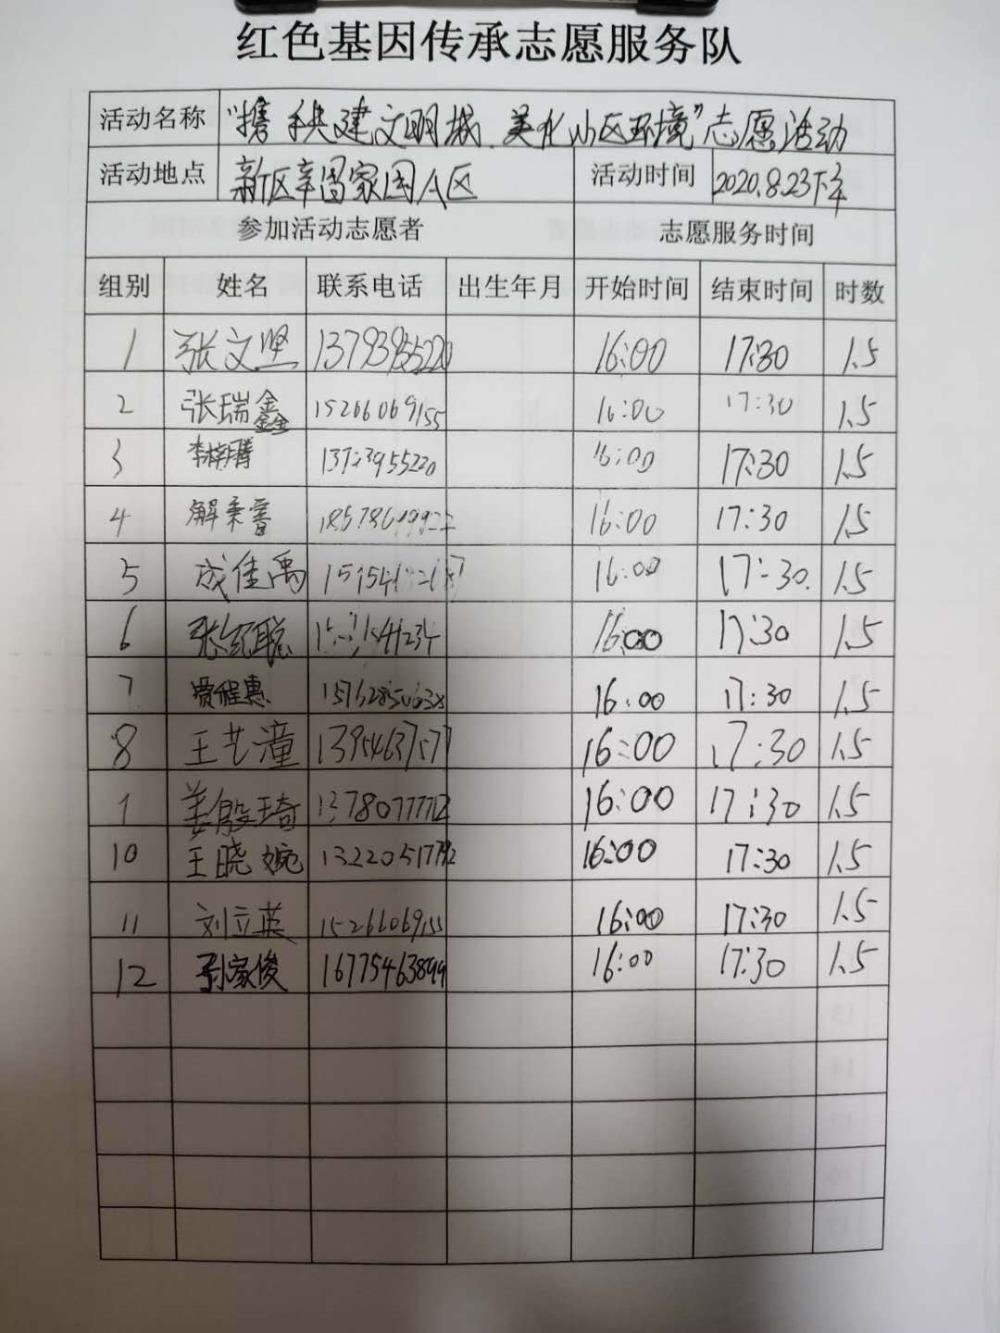 红色基因传承志愿服务队
活动名称 “携手共建文明城 美化小区环境”志愿活动
活动地点 新区辛留家园A区 活动时间 2020.8.23下午
参加活动志愿者 志愿服务时间
组别 姓名 联系电话 出生年月 开始时间 结束时间 时数
1 张文坚 13793955220 16:00 17:30 1.5
2 张瑞鑫 15266069155 16:00 17:30 1.5
3 13723955220 16:00 17:30 1.5
4 解秉睿 16:00 17:30 1.5
5 成佳禹 16:00 17:30 1.5
6 16:00 17:30 1.5
7 16:00 17:30 1.5
8 王艺潼 16:00 17:30 1.5
1 姜殷琦 16:00 17:30 1.5
10 王晓婉 16:00 17:30 1.5
11 刘立英 15266069155 16:00 17:30 1.5
12 孙家俊 16775463899 16:00 17:30 1.5